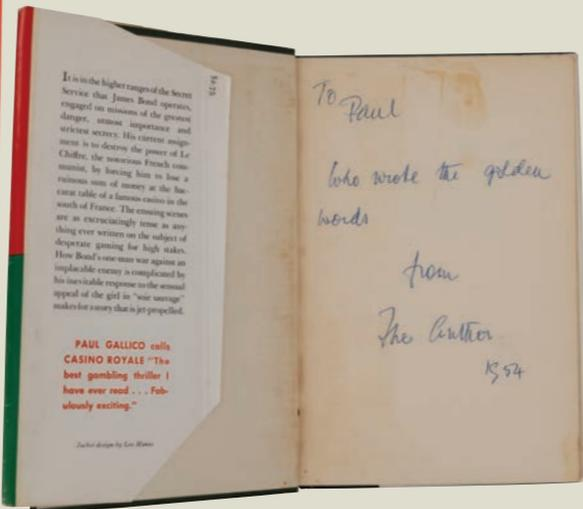 It is in the higher ranges of the Secret
Service that James Bond operates,
engaged on missions of the greatest
danger, utmost importance and
strictest secrecy. His current assign-
ment is to destroy the power of Le
Chiffre, the notorious French com-
munist, by forcing him to lose a
ruinous sum of money at the bac-
carat table of a famous casino in the
south of France. The ensuing scenes
are as excruciatingly tense as any-
thing ever written on the subject of
desperate gaming for high stakes.
How Bond's one-man war against an
implacable enemy is complicated by
his inevitable response to the sensual
appeal of the girl in "soie sauvage"
makes for a story that is jet-propelled.
PAUL GALLICO calls
CASINO ROYALE "The
best gambling thriller I
have ever read . . . Fab-
ulously exciting."
Jacket design by Leo Manso
To
Paul
Who wrote the golden
words
from
The Author
1954